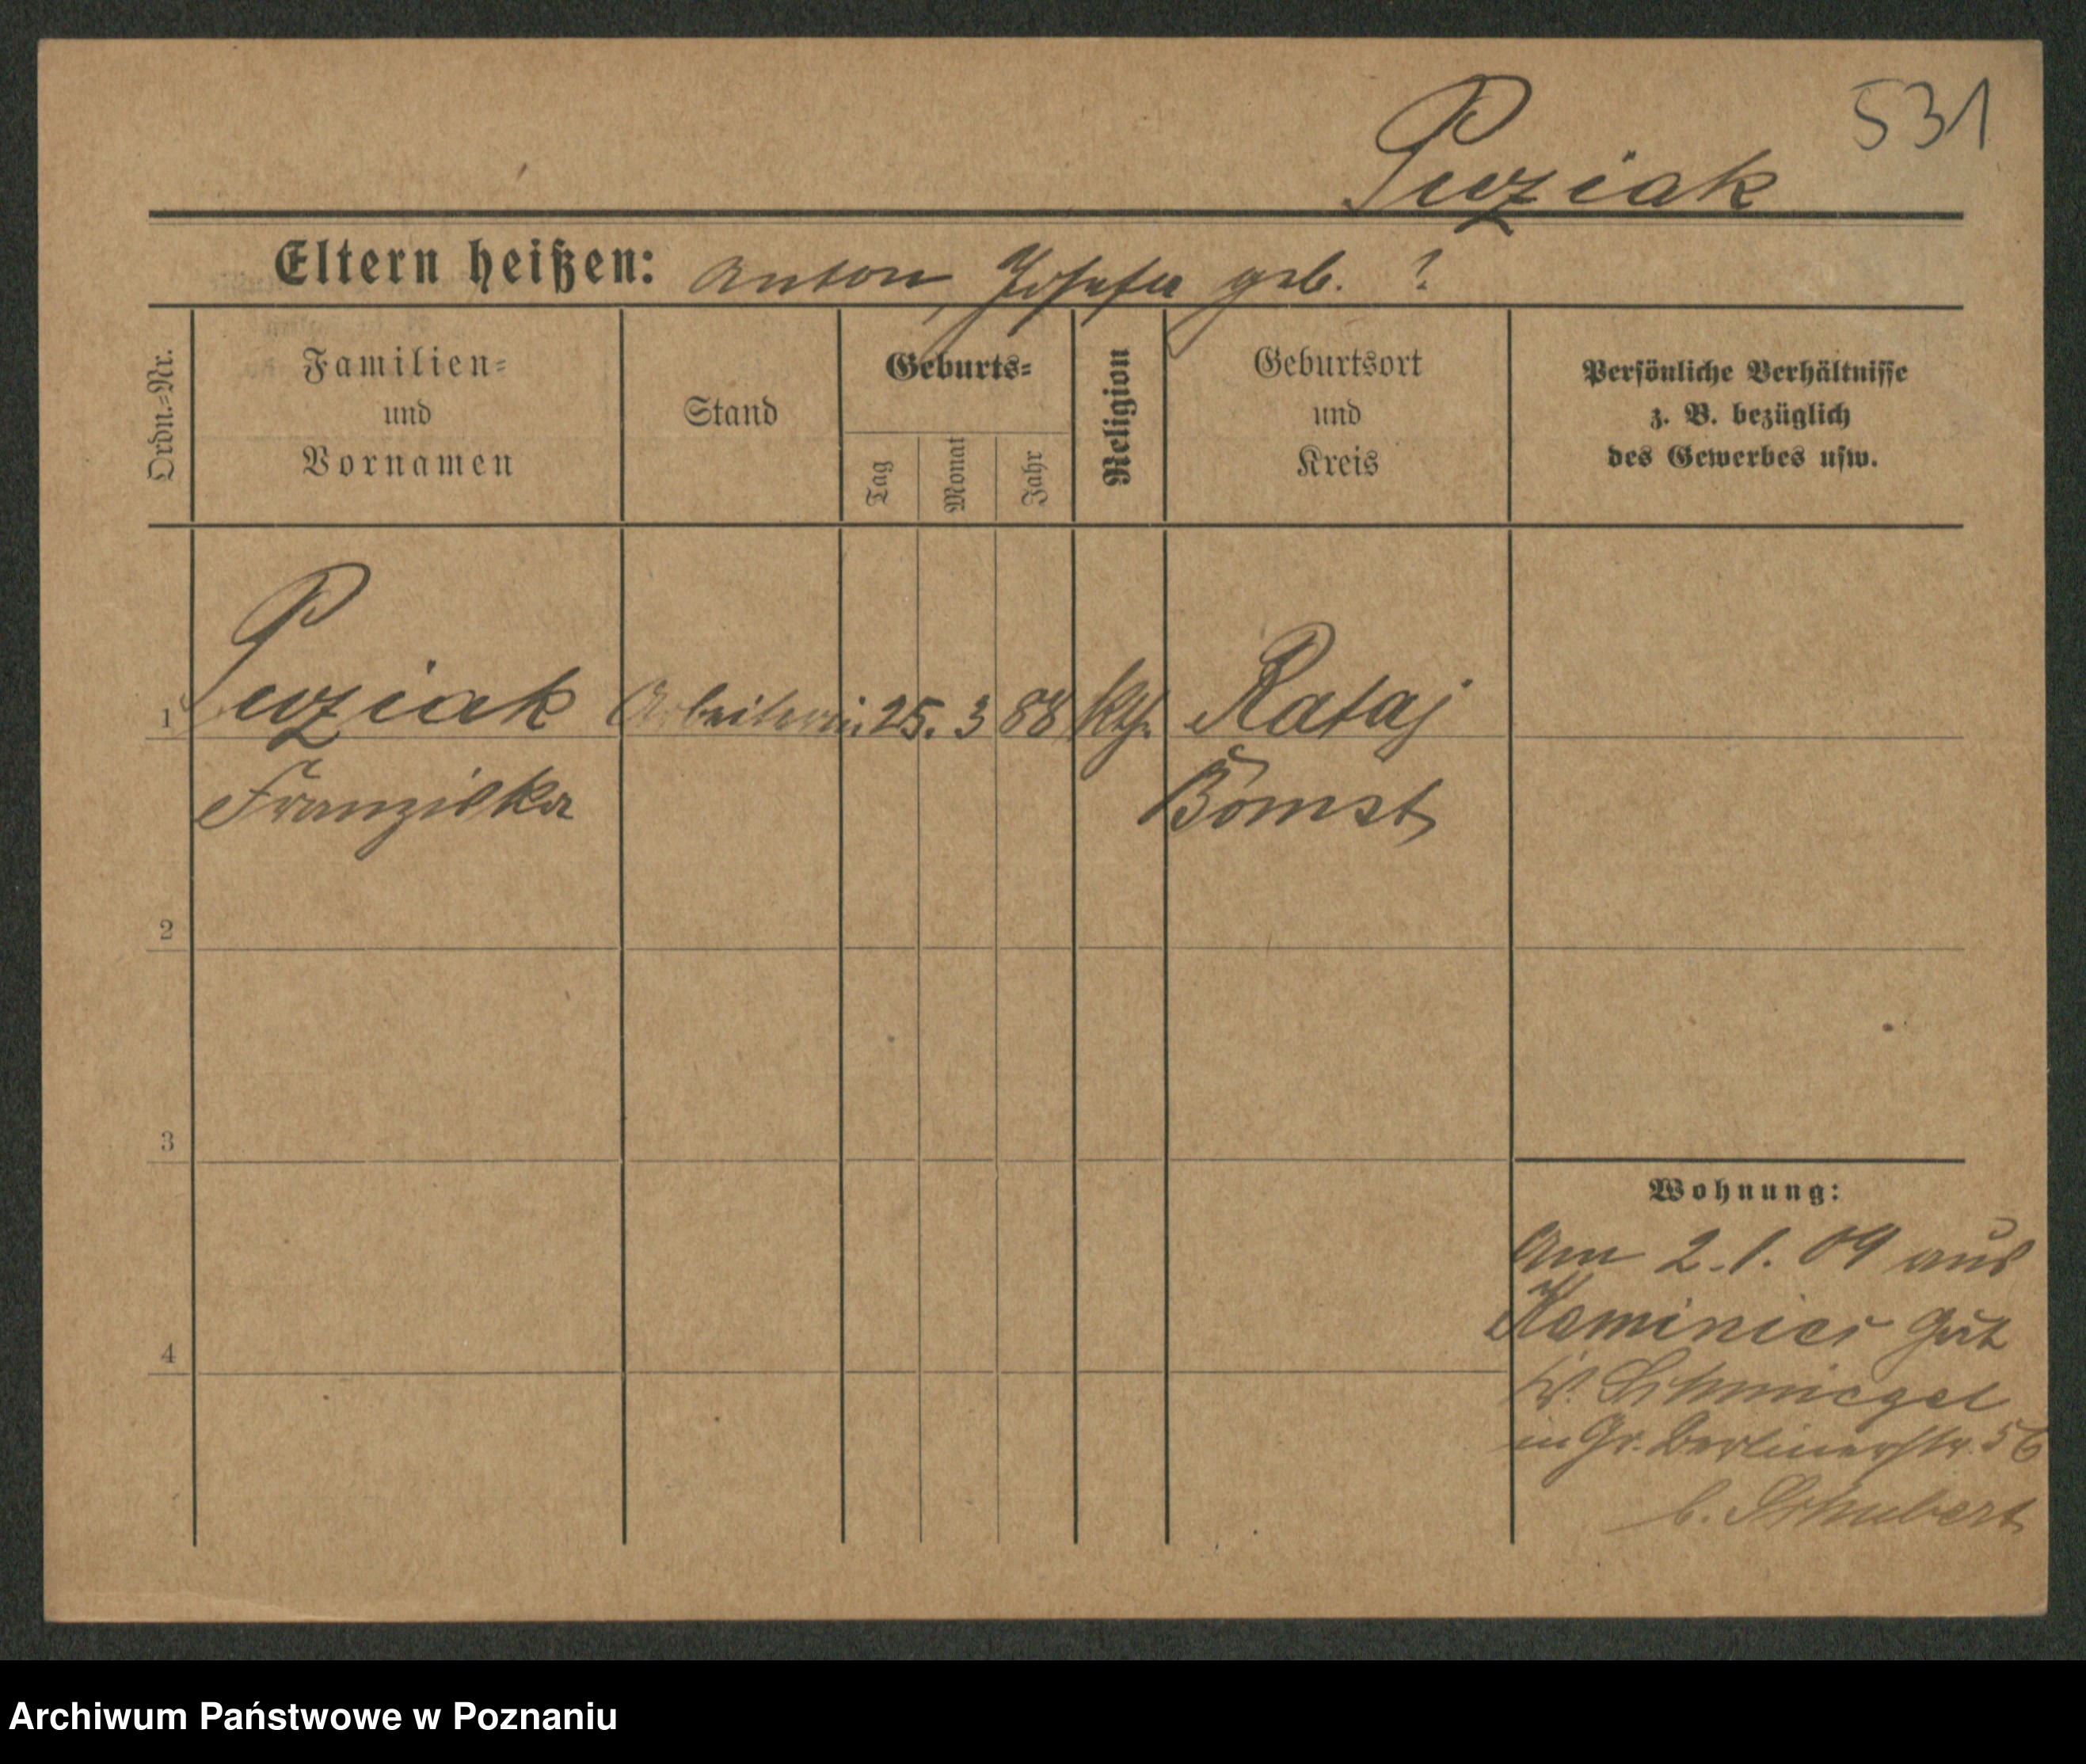 531
Puziak
Eltern heißen: Anton, Josefa geb. ?
Ordn.=Nr.
Familien=
und
Vornamen
Stand
Geburts=
Tag
Monat
Jahr
Religion
Geburtsort
und
Kreis
Persönliche Verhältnisse
z. B. bezüglich
des Gewerbes usw.
1 Puziak Arbeiterin 25. 3 88 kth. Rataj
Franziska Bomst
2
3
4
Wohnung:
Am 2.1.09 aus
Kaminiec Gut
Kr. Schmiegel
in Gr. Berlinerstr. 56
b. Schubert
Archiwum Państwowe w Poznaniu